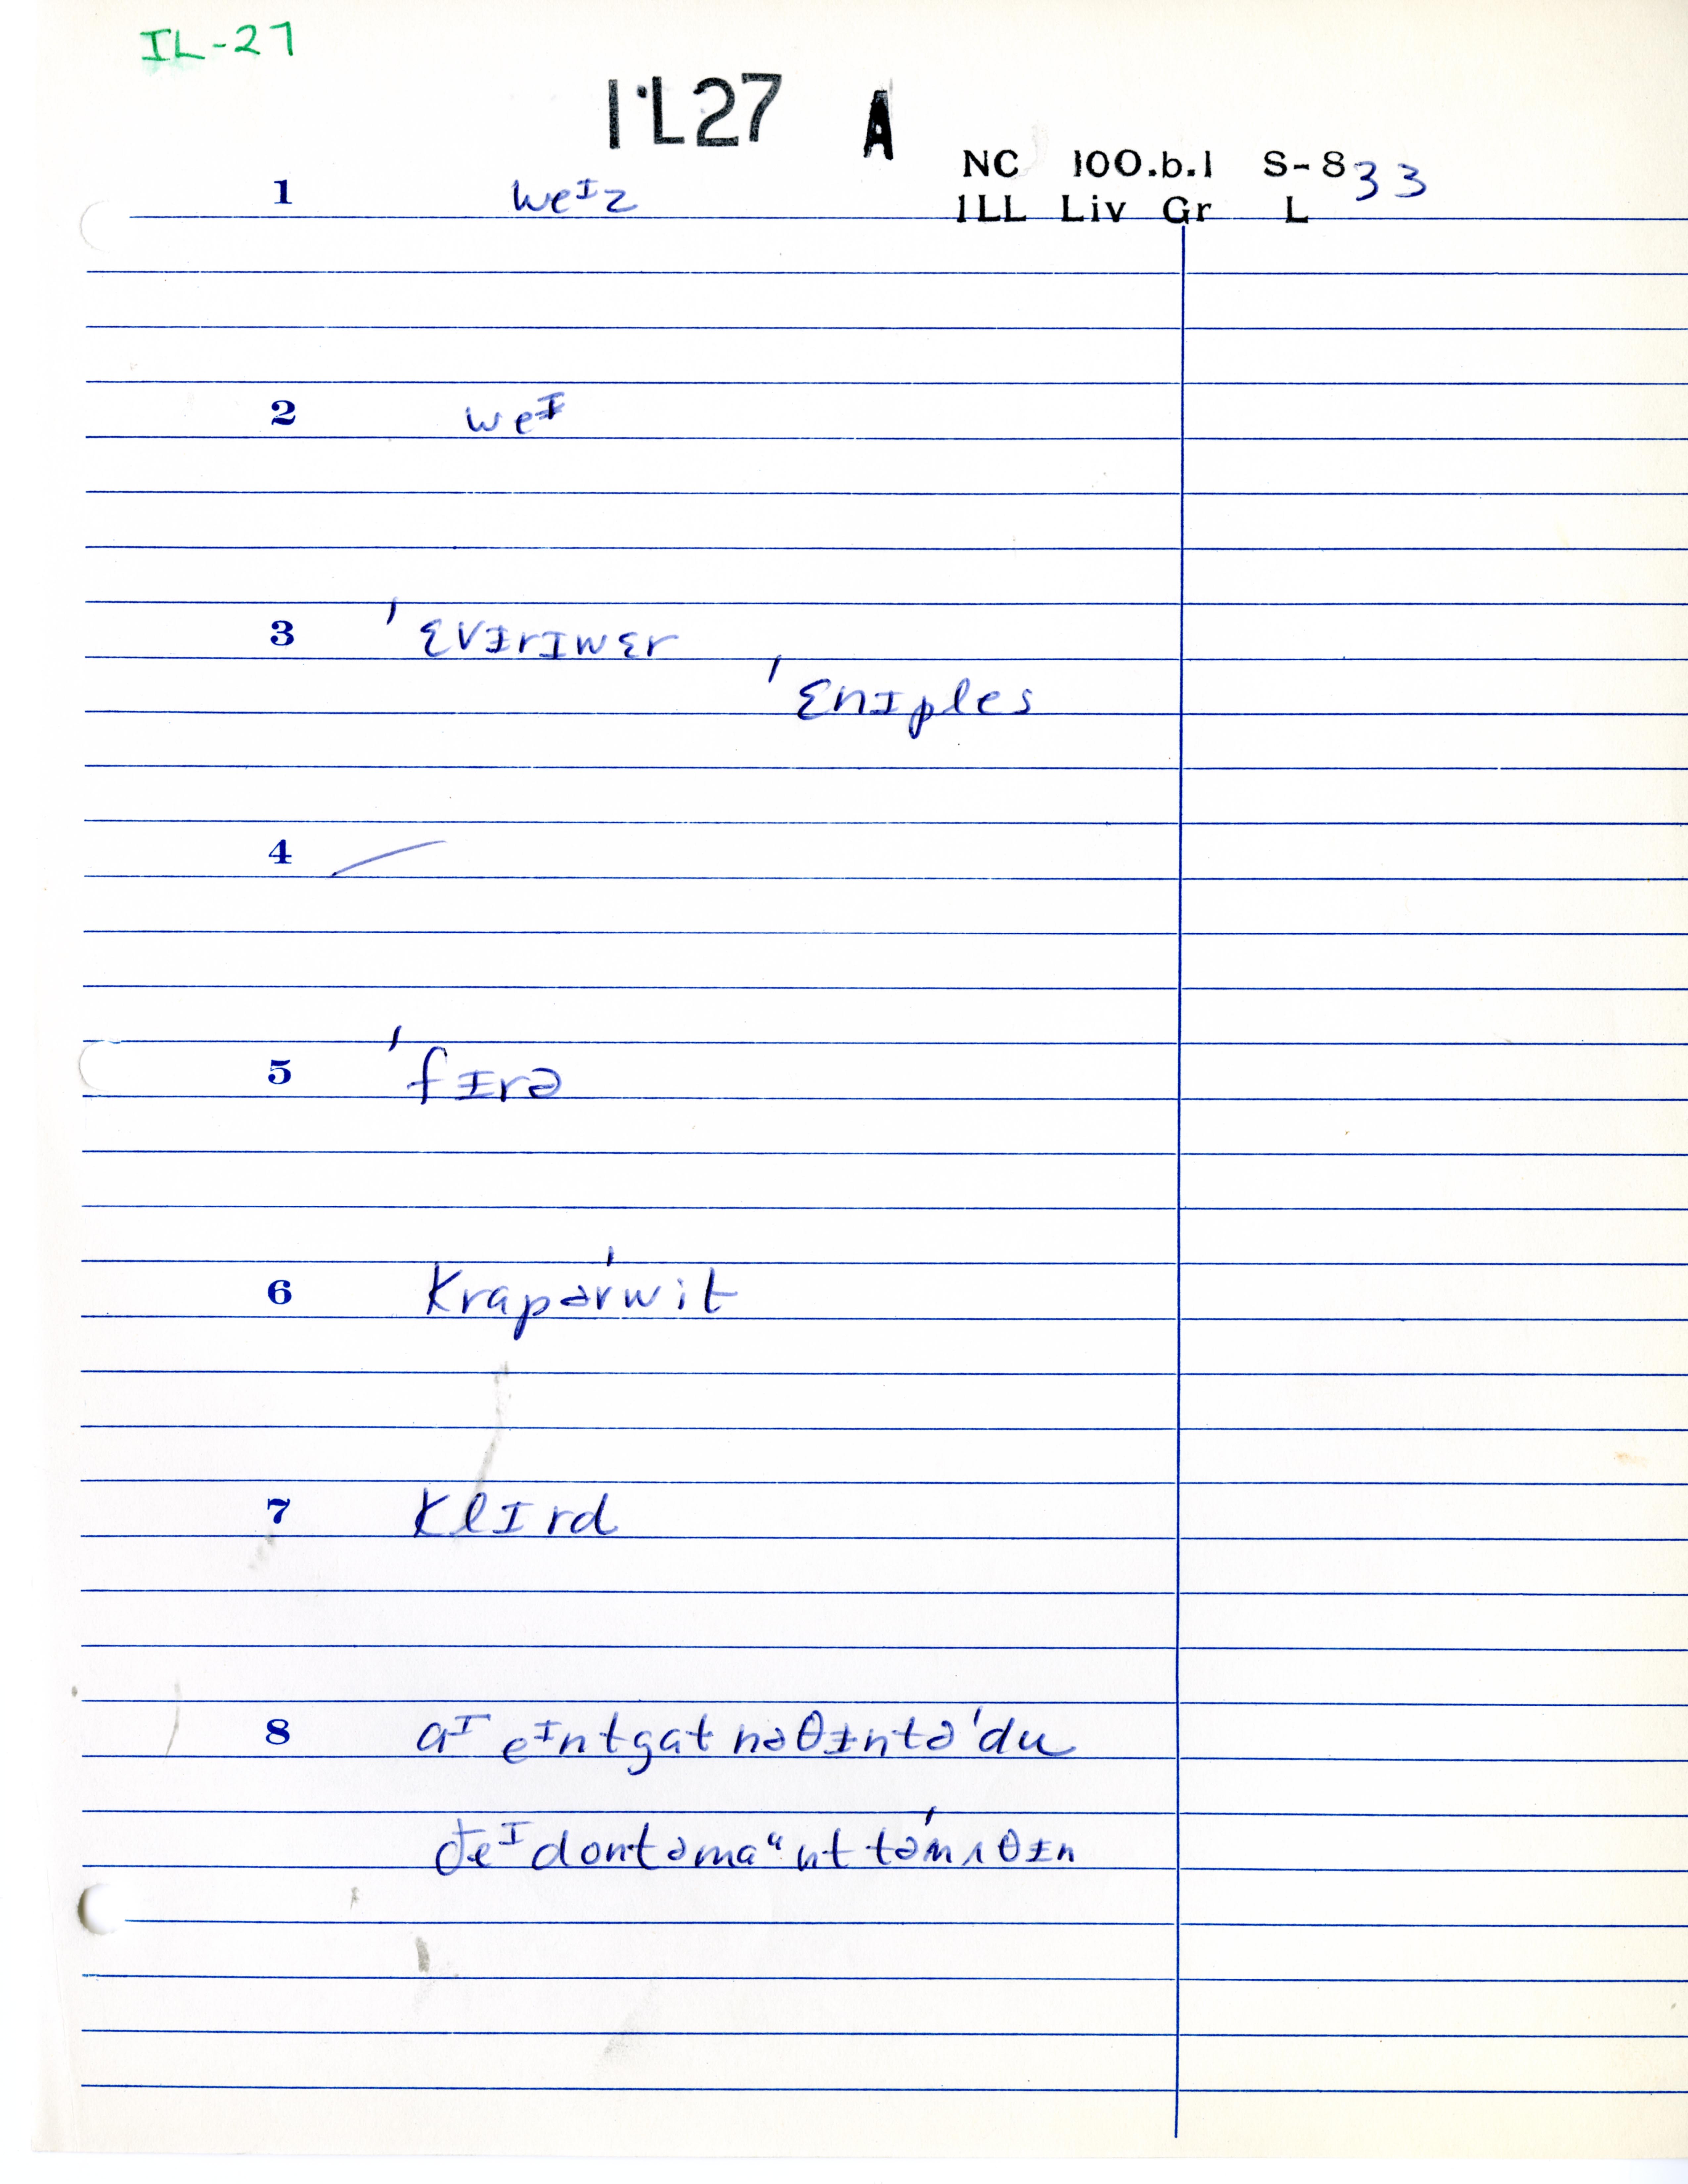 IL-27
1·L27 A
NC 100.b.1 S-833
1LL Liv Gr L
1 weᶦz
2 weᶦ
3 ˈɛvɪrɪwɛr
ˈɛnɪples
4
5 ˈfɪrə
6 krapərˈwit
7 klɪrd
8 aᶦ eᶦntgat nəθɪntəˈdu
ðeᶦdontəmaᵘnttəˈnʌθɪn